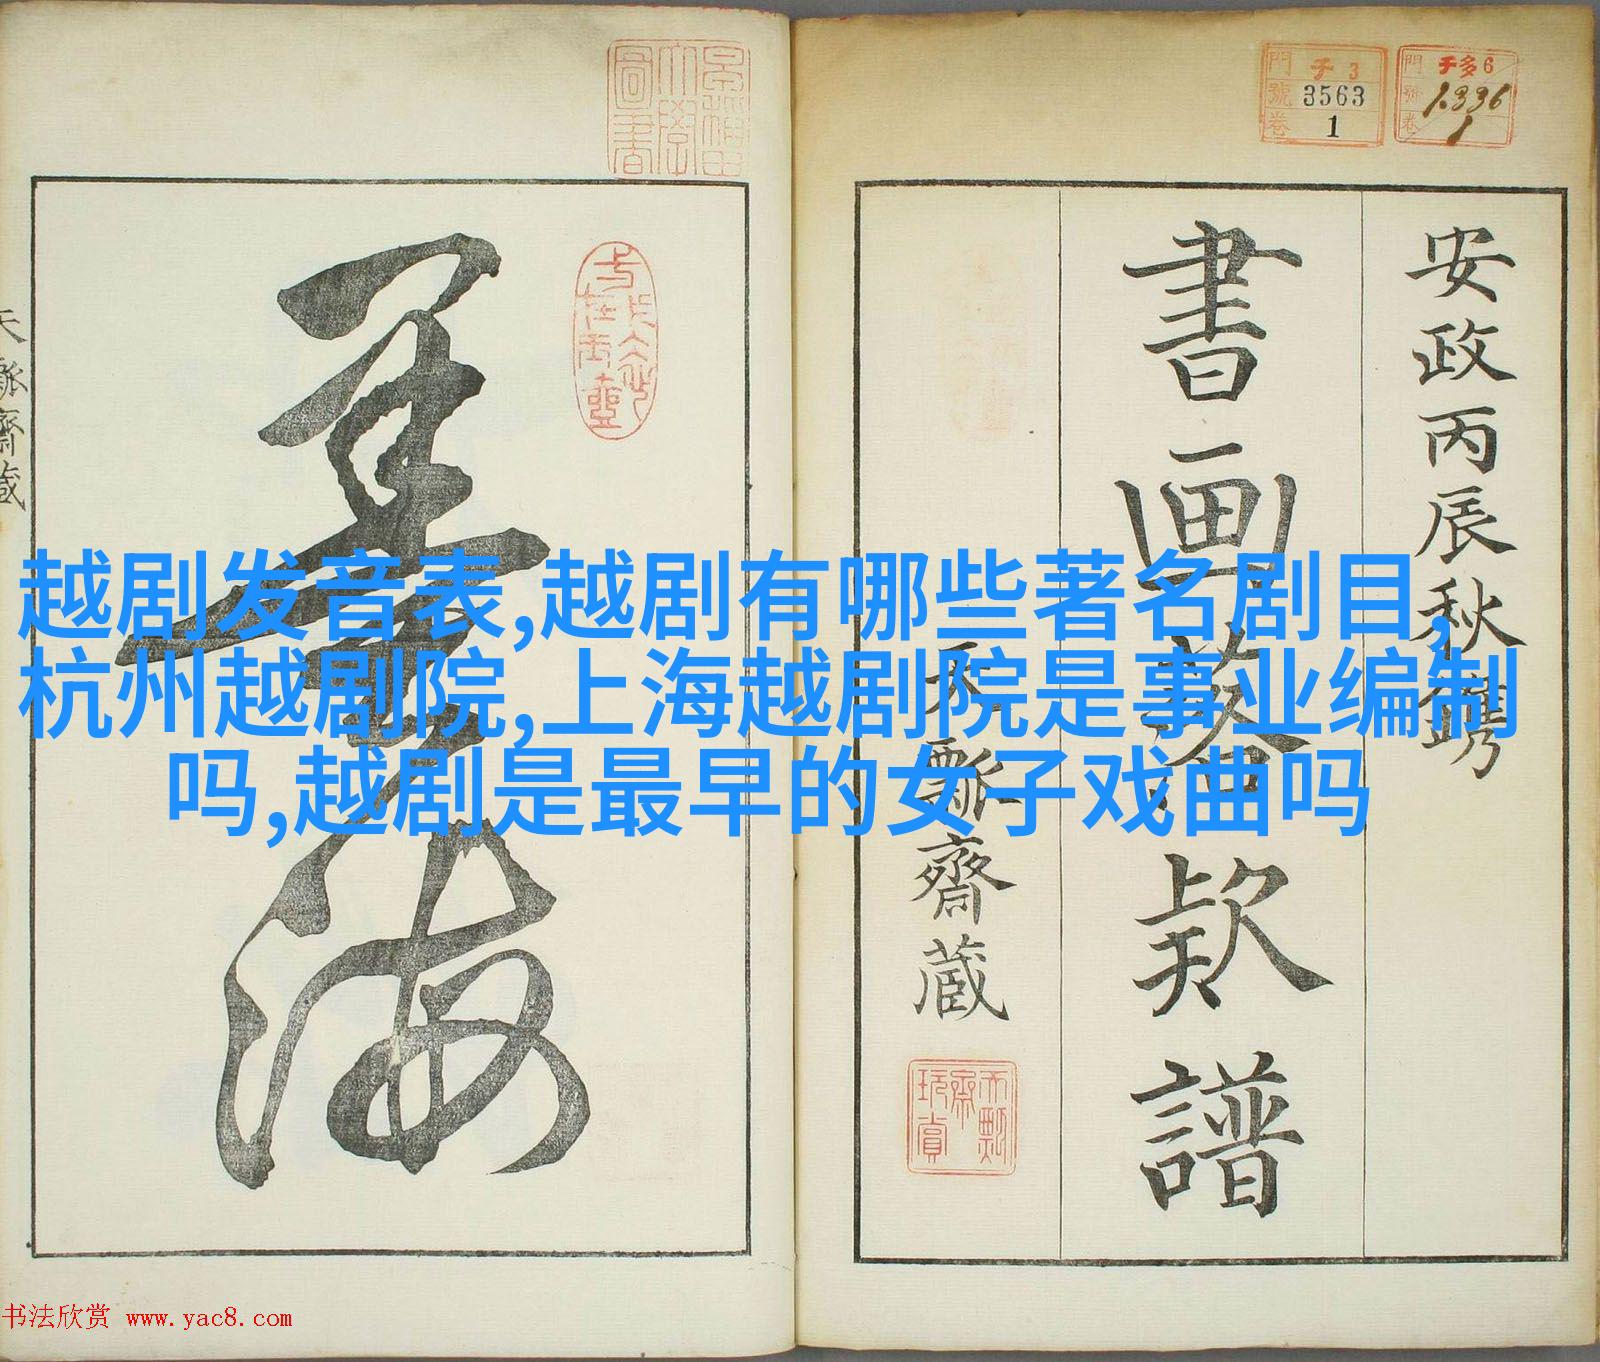 越剧发音表,越剧有哪些著名剧目,
杭州越剧院,上海越剧院是事业编制
吗,越剧是最早的女子戏曲吗
安政丙辰秋鐫
書画落款譜
天瓢齋蔵
墨海
門 チ 3
號 3563
卷 1
門 チ多6
號 1336
卷 1
书法欣赏 www.yac8.com